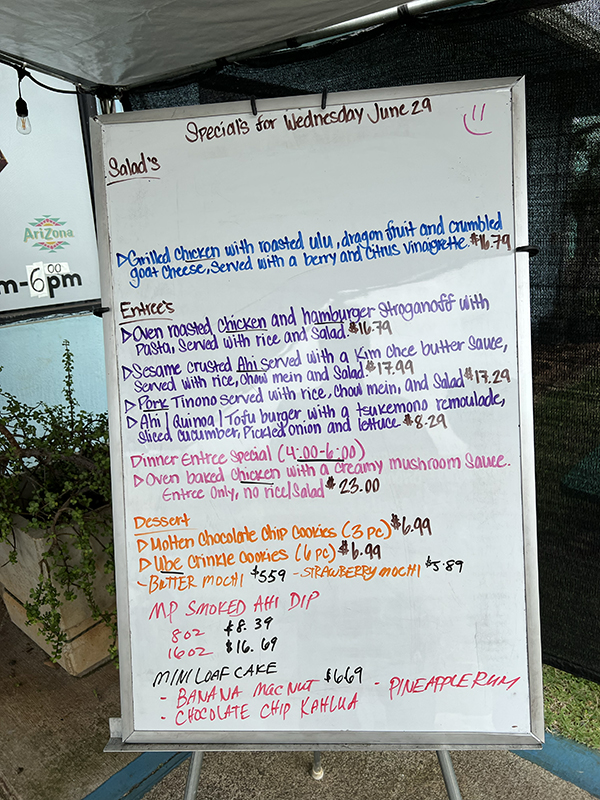 Special's for Wednesday June 29
Salad's
AriZona
m-6 00 pm
▷Grilled chicken with roasted ulu, dragon fruit and crumbled
goat cheese, Served with a berry and citrus vinaigrette. $16.79
Entree's
▷Oven roasted chicken and hamburger Stroganoff with
Pasta, Served with rice and Salad. $16.79
▷Sesame crusted Ahi served with a Kim chee butter sauce,
Served with rice, Chow mein and Salad. $17.99
▷Pork Tinono served with rice, chow mein, and Salad $17.29
▷Ahi / Quinoa / Tofu burger, with a tsukemono remoulade,
Sliced cucumber, Pickled onion and lettuce $8.29
Dinner Entree Special (4:00-6:00)
▷Oven baked chicken with a creamy mushroom Sauce.
Entree Only, no rice/Salad $23.00
Dessert
▷Molten Chocolate Chip Cookies (3 pc) $6.99
▷Ube Crinkle Cookies (6 pc) $6.99
-BUTTER MOCHI $559 - STRAWBERRY MOCHI $5.89
MP SMOKED AHI DIP
8oz $8.39
16oz $16.69
MINI LOAF CAKE $669
- BANANA MAC NUT - PINEAPPLE RUM
- CHOCOLATE CHIP KAHLUA